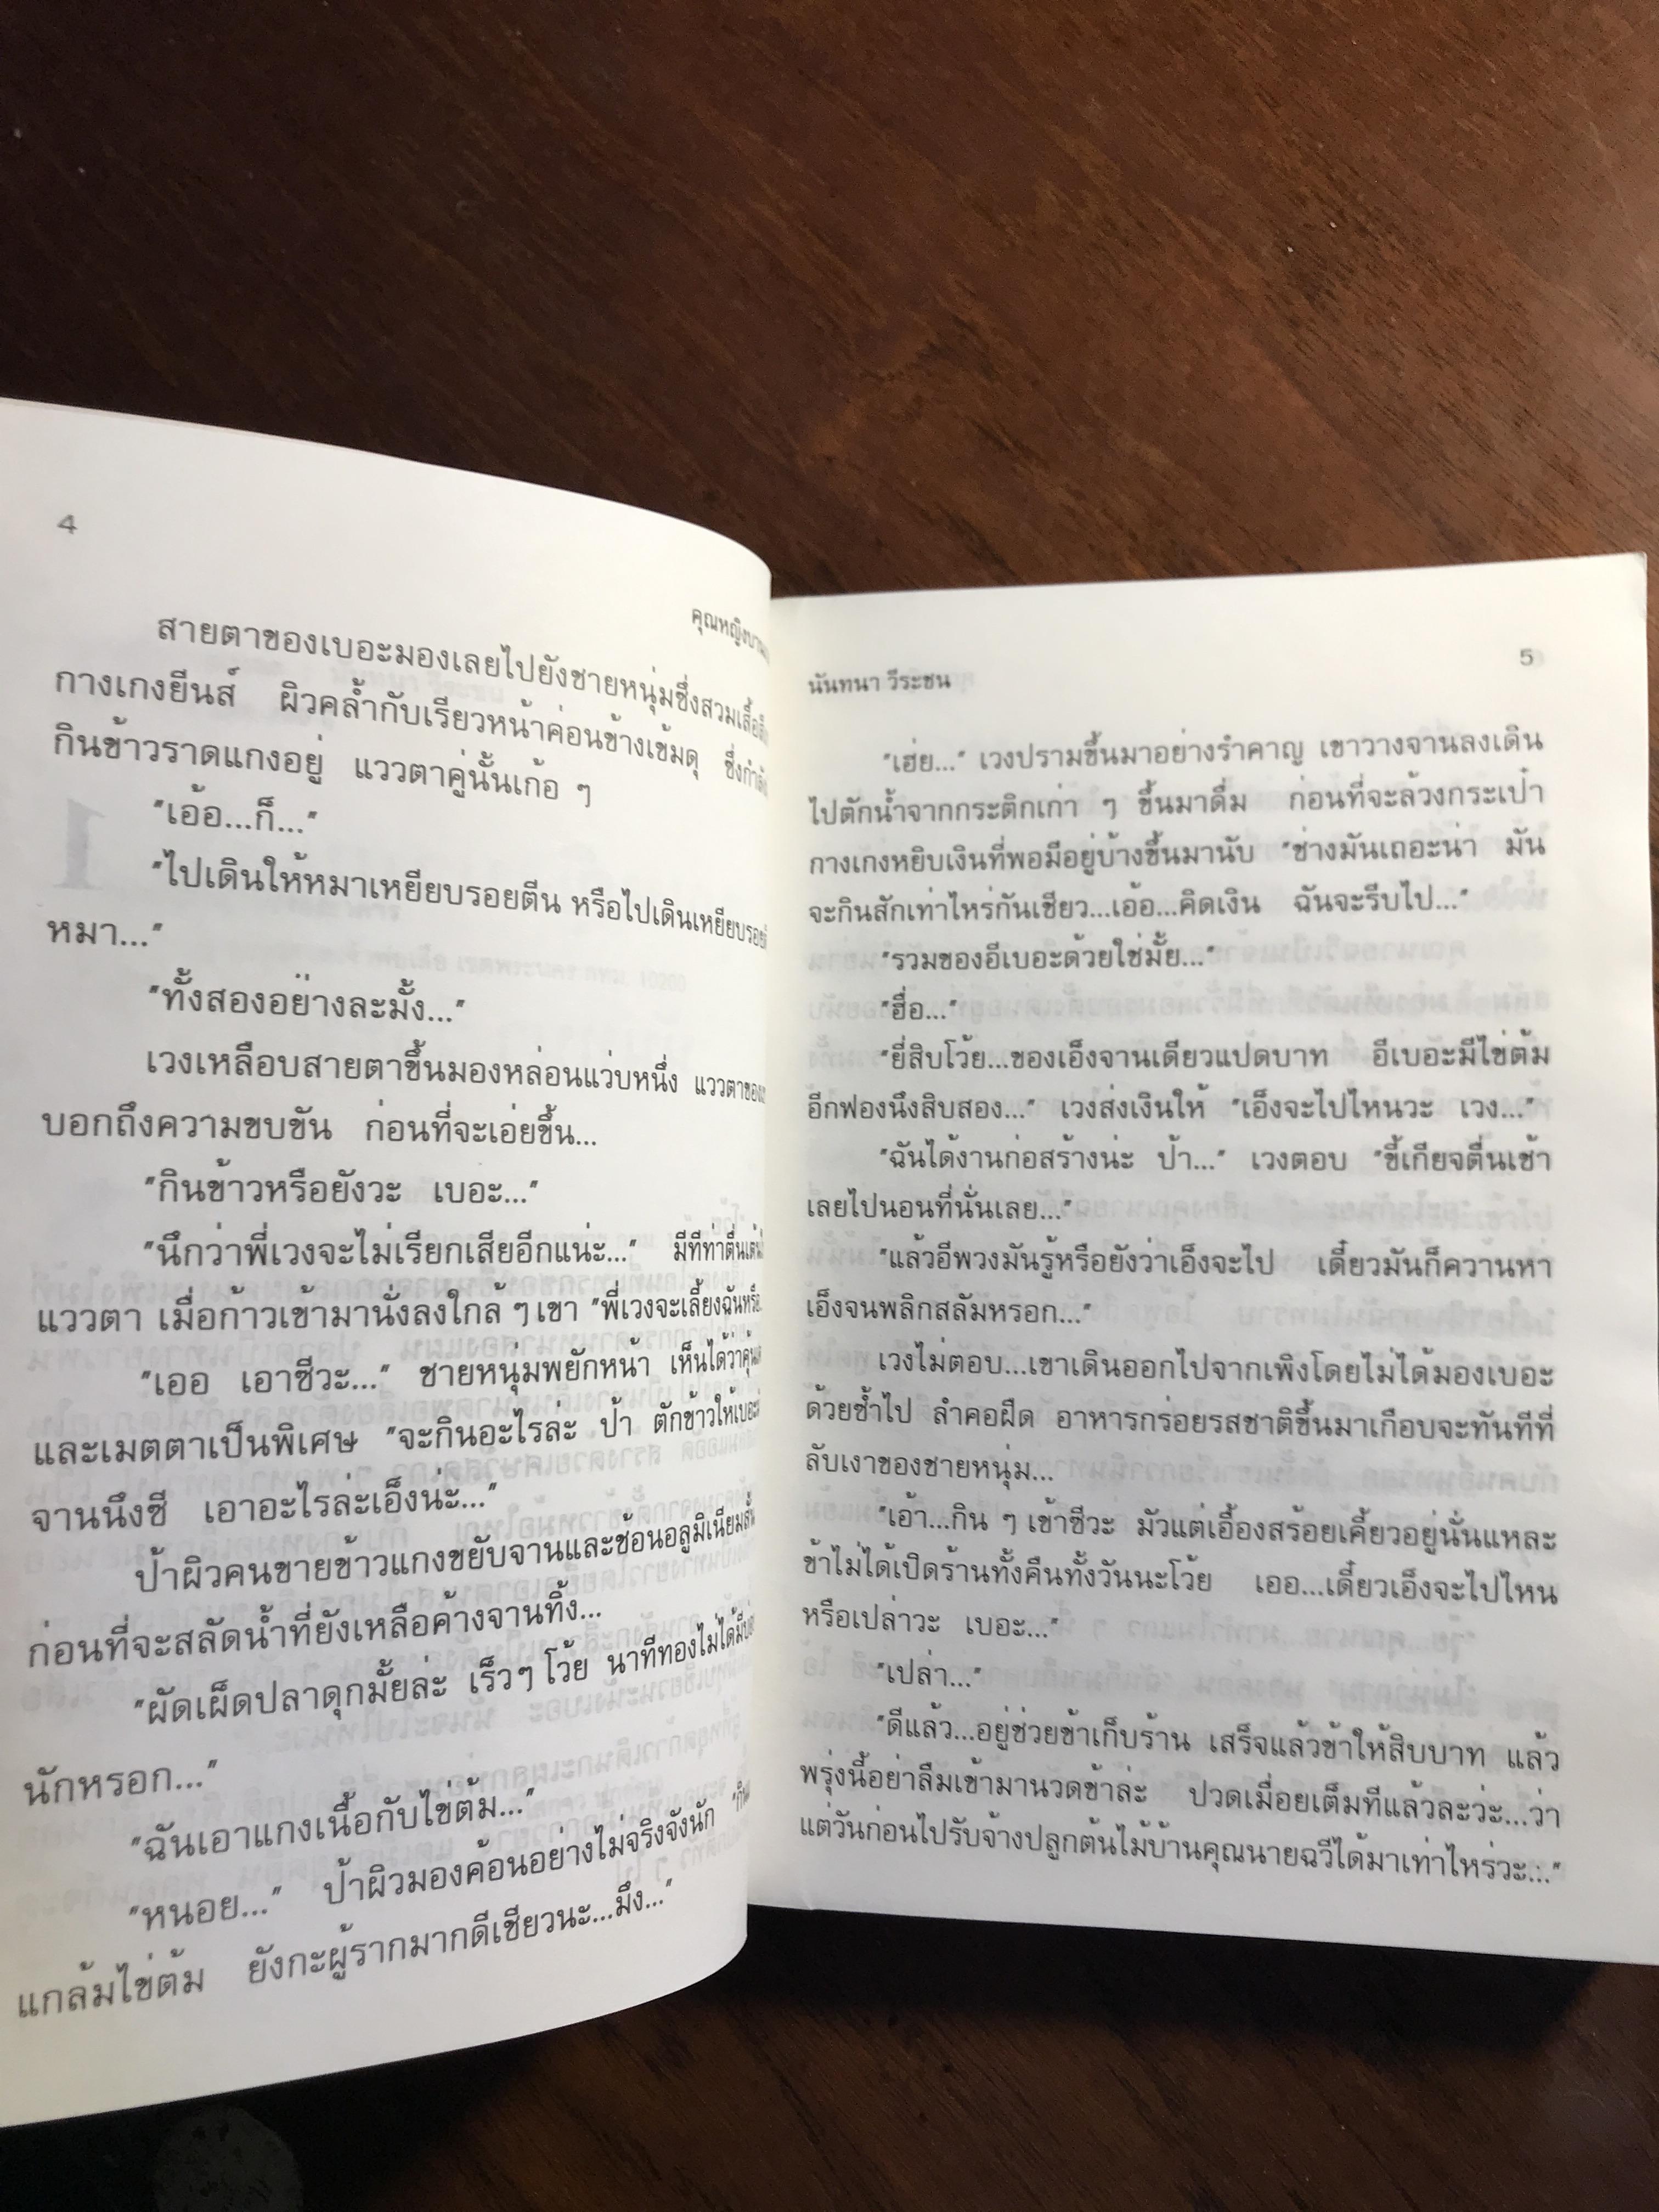 4
สายตาของเบอะมองเลยไปยังชายหนุ่มซึ่งสวมเสื้อ
กางเกงยีนส์ ผิวคล้ำกับเรียวหน้าค่อนข้างเข้มดุ
กินข้าวราดแกงอยู่ แววตาคู่นั้นเก้อ ๆ
"เอ้อ...ก็..."
"ไปเดินให้หมาเหยียบรอยตีน หรือไปเดินเหยียบรอย
หมา..."
"ทั้งสองอย่างละมั้ง..."
เวงเหลือบสายตาขึ้นมองหล่อนแว่บหนึ่ง
บอกถึงความขบขัน ก่อนที่จะเอ่ยขึ้น...
"กินข้าวหรือยังวะ เบอะ..."
"นึกว่าพี่เวงจะไม่เรียกเสียอีกแน่ะ..." มีทีท่าตื่นเต้น
แววตา เมื่อก้าวเข้ามานั่งลงใกล้ ๆ เขา "พี่เวงจะเลี้ยงฉัน
"เออ เอาซีวะ..." ชายหนุ่มพยักหน้า เห็นได้ว่า
และเมตตาเป็นพิเศษ "จะกินอะไรล่ะ ป้า ตักข้าวให้เบอะ
จานนึงซี เอาอะไรล่ะเอ็งน่ะ..."
ป้าผิวคนขายข้าวแกงขยับจานและช้อนอลูมิเนียม
ก่อนที่จะสลัดน้ำที่ยังเหลือค้างจานทิ้ง...
"ผัดเผ็ดปลาดุกมั้ยล่ะ เร็วๆ โว้ย นาทีทองไม่ได้มี
นักหรอก..."
"ฉันเอาแกงเนื้อกับไข่ต้ม..."
"หนอย..." ป้าผิวมองค้อนอย่างไม่จริงจังนัก
แกล้มไข่ต้ม ยังกะผู้รากมากดีเชียวนะ...มึง..."
นันทนา วีระชน
5
"เฮ่ย..." เวงปรามขึ้นมาอย่างรำคาญ เขาวางจานลงเดิน
ไปตักน้ำจากกระติกเก่า ๆ ขึ้นมาดื่ม ก่อนที่จะล้วงกระเป๋า
กางเกงหยิบเงินที่พอมีอยู่บ้างขึ้นมานับ "ช่างมันเถอะน่า มัน
จะกินสักเท่าไหร่กันเชียว...เอ้อ...คิดเงิน ฉันจะรีบไป..."
"รวมของอีเบอะด้วยใช่มั้ย..."
"ฮื่อ..."
"ยี่สิบโว้ย...ของเอ็งจานเดียวแปดบาท อีเบอะมีไข่ต้ม
อีกฟองนึงสิบสอง..." เวงส่งเงินให้ "เอ็งจะไปไหนวะ เวง..."
"ฉันได้งานก่อสร้างน่ะ ป้า..." เวงตอบ "ขี้เกียจตื่นเช้า
เลยไปนอนที่นั่นเลย..."
"แล้วอีพวงมันรู้หรือยังว่าเอ็งจะไป เดี๋ยวมันก็ควานหา
เอ็งจนพลิกสลัมหรอก..."
เวงไม่ตอบ...เขาเดินออกไปจากเพิงโดยไม่ได้มองเบอะ
ด้วยซ้ำไป ลำคอฝืด อาหารกร่อยรสชาติขึ้นมาเกือบจะทันทีที่
ลับเงาของชายหนุ่ม...
"เอ้า...กิน ๆ เข้าซีวะ มัวแต่เอื้องสร้อยเคี้ยวอยู่นั่นแหละ
ข้าไม่ได้เปิดร้านทั้งคืนทั้งวันนะโว้ย เออ...เดี๋ยวเอ็งจะไปไหน
หรือเปล่าวะ เบอะ..."
"เปล่า..."
"ดีแล้ว...อยู่ช่วยข้าเก็บร้าน เสร็จแล้วข้าให้สิบบาท แล้ว
พรุ่งนี้อย่าลืมเข้ามานวดข้าล่ะ ปวดเมื่อยเต็มทีแล้วละว่ะ...ว่า
แต่วันก่อนไปรับจ้างปลูกต้นไม้บ้านคุณนายฉวีได้มาเท่าไหร่วะ..."